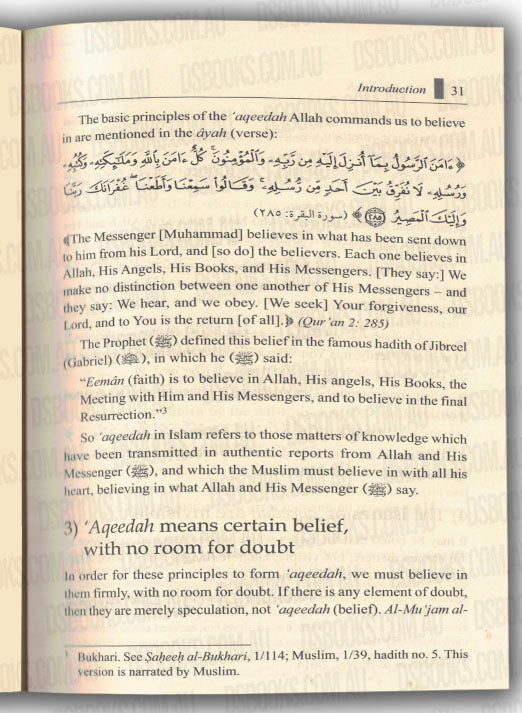 Introduction 31
The basic principles of the ‘aqeedah Allah commands us to believe
in are mentioned in the âyah (verse):
﴿ ءَامَنَ ٱلرَّسُولُ بِمَآ أُنزِلَ إِلَيْهِ مِن رَّبِّهِۦ وَٱلْمُؤْمِنُونَ ۚ كُلٌّ ءَامَنَ بِٱللَّهِ وَمَلَـٰٓئِكَتِهِۦ وَكُتُبِهِۦ
وَرُسُلِهِۦ لَا نُفَرِّقُ بَيْنَ أَحَدٍ مِّن رُّسُلِهِۦ ۚ وَقَالُوا۟ سَمِعْنَا وَأَطَعْنَا ۖ غُفْرَانَكَ رَبَّنَا
وَإِلَيْكَ ٱلْمَصِيرُ ﴿٢٨٥﴾ ﴾ (سورة البقرة: ٢٨٥)
﴿The Messenger [Muhammad] believes in what has been sent down
to him from his Lord, and [so do] the believers. Each one believes in
Allah, His Angels, His Books, and His Messengers. [They say:] We
make no distinction between one another of His Messengers – and
they say: We hear, and we obey. [We seek] Your forgiveness, our
Lord, and to You is the return [of all].﴾ (Qur’an 2: 285)
The Prophet (ﷺ) defined this belief in the famous hadith of Jibreel
(Gabriel) (), in which he (ﷺ) said:
“Eemân (faith) is to believe in Allah, His angels, His Books, the
Meeting with Him and His Messengers, and to believe in the final
Resurrection.”³
So ‘aqeedah in Islam refers to those matters of knowledge which
have been transmitted in authentic reports from Allah and His
Messenger (ﷺ), and which the Muslim must believe in with all his
heart, believing in what Allah and His Messenger (ﷺ) say.
3) ‘Aqeedah means certain belief,
with no room for doubt
In order for these principles to form ‘aqeedah, we must believe in
them firmly, with no room for doubt. If there is any element of doubt,
then they are merely speculation, not ‘aqeedah (belief). Al-Mu‘jam al-
³ Bukhari. See Ṣaḥeeḥ al-Bukhari, 1/114; Muslim, 1/39, hadith no. 5. This
version is narrated by Muslim.
DSBOOKS.COM.AU